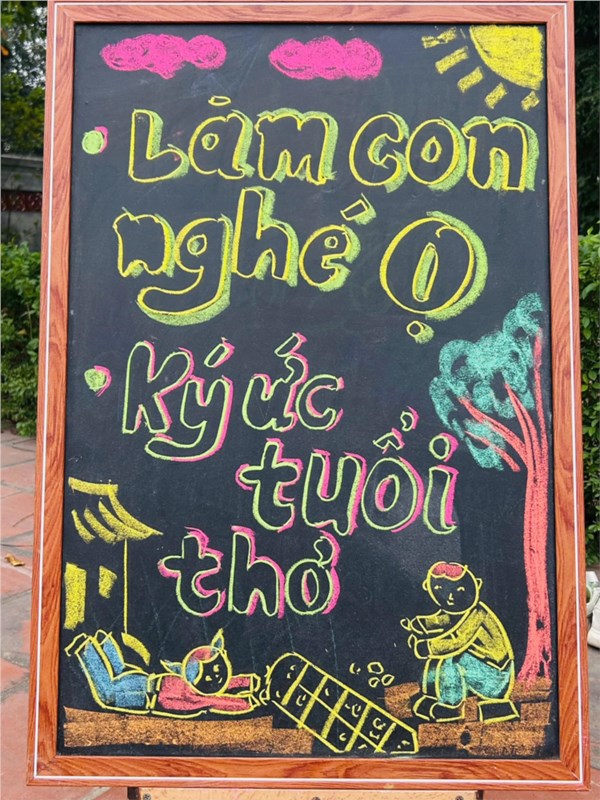 • Làm con
nghé Ọ
• Ký ức
tuổi
thơ